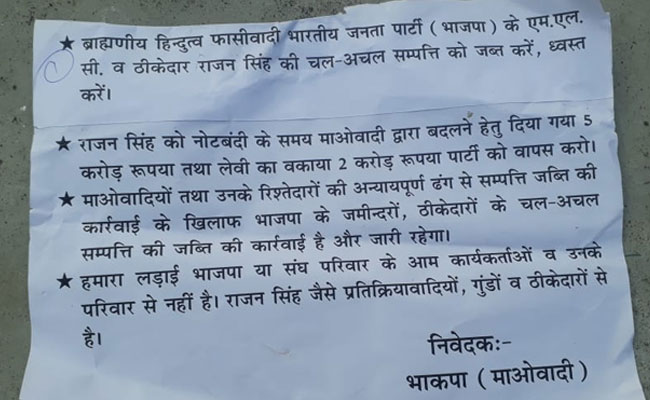 ★ ब्राह्मणीय हिन्दुत्व फासीवादी भारतीय जनता पार्टी ( भाजपा ) के एम.एल.
सी. व ठीकेदार राजन सिंह की चल-अचल सम्पत्ति को जब्त करें, ध्वस्त
करें।
★ राजन सिंह को नोटबंदी के समय माओवादी द्वारा बदलने हेतु दिया गया 5
करोड़ रूपया तथा लेवी का वकाया 2 करोड़ रूपया पार्टी को वापस करो।
★ माओवादियों तथा उनके रिश्तेदारों की अन्यायपूर्ण ढंग से सम्पत्ति जब्ति की
कार्रवाई के खिलाफ भाजपा के जमीन्दरों, ठीकेदारों के चल-अचल
सम्पत्ति की जब्ति की कार्रवाई है और जारी रहेगा।
★ हमारा लड़ाई भाजपा या संघ परिवार के आम कार्यकर्ताओं व उनके
परिवार से नहीं है। राजन सिंह जैसे प्रतिक्रियावादियों, गुंडों व ठीकेदारों से
है।
निवेदकः-
भाकपा ( माओवादी )